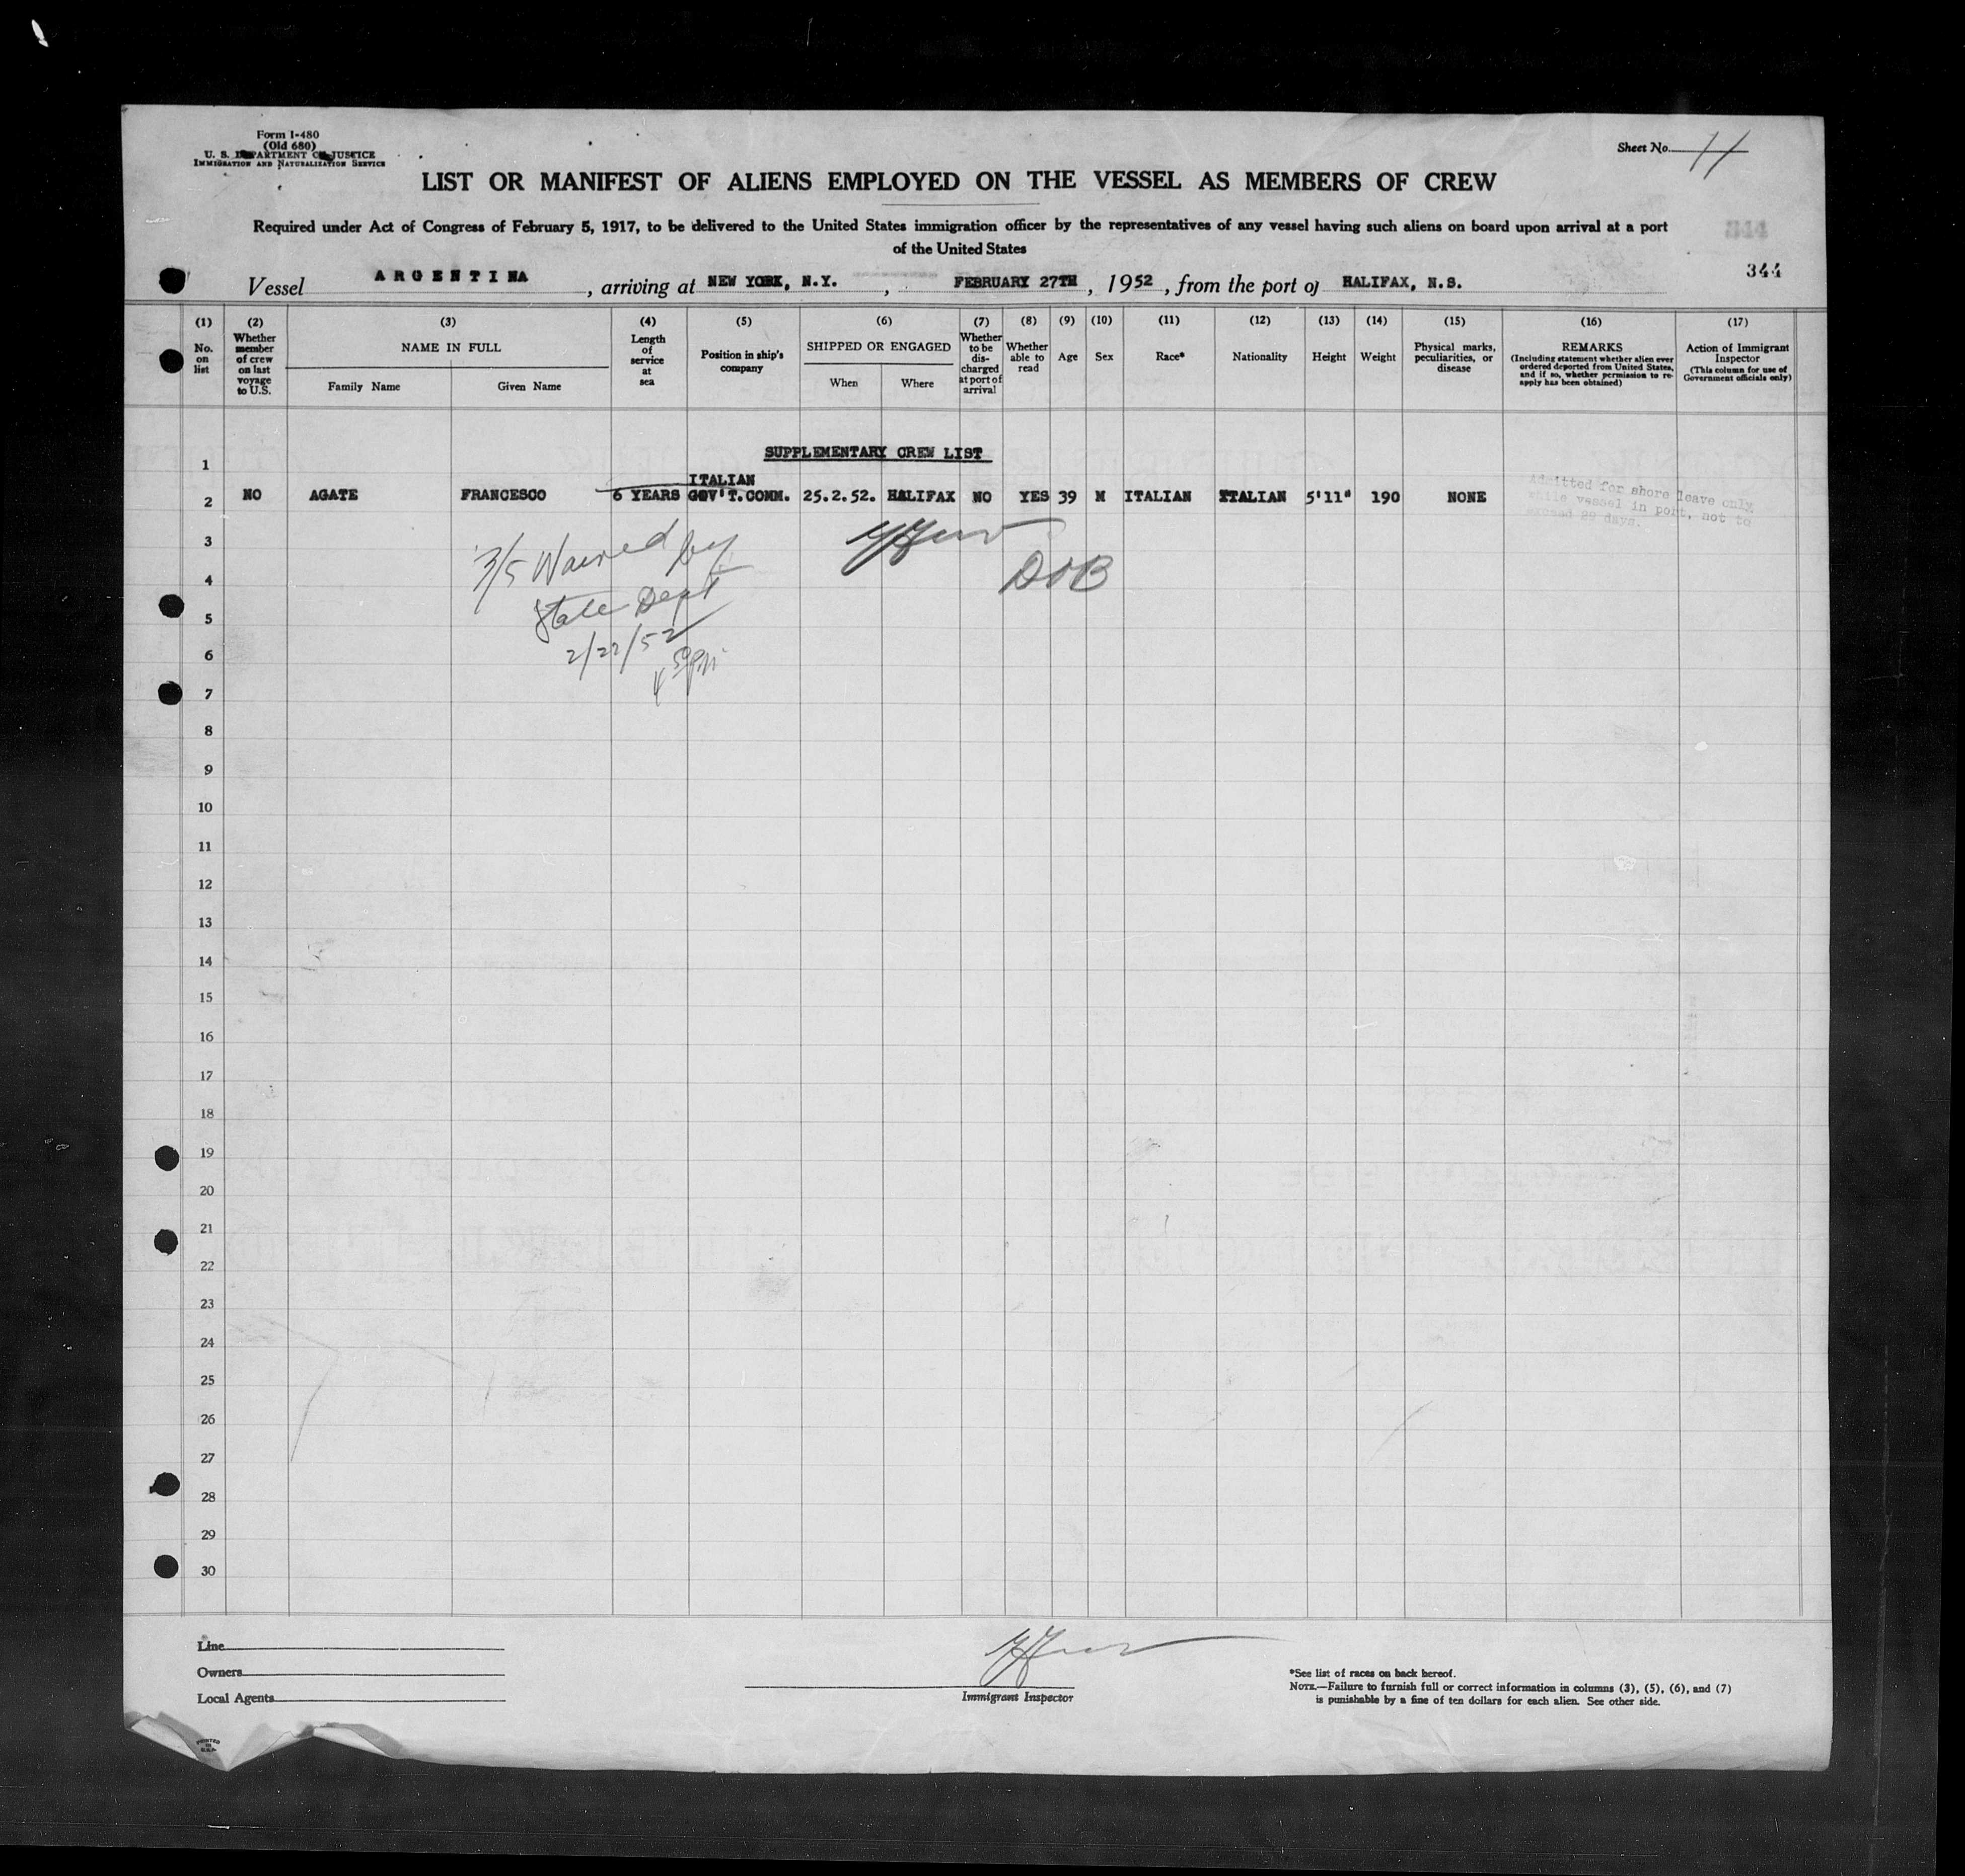 Form I-480
(Old 680)
U. S. DEPARTMENT OF JUSTICE
IMMIGRATION AND NATURALIZATION SERVICE
Sheet No. 11
LIST OR MANIFEST OF ALIENS EMPLOYED ON THE VESSEL AS MEMBERS OF CREW
Required under Act of Congress of February 5, 1917, to be delivered to the United States immigration officer by the representatives of any vessel having such aliens on board upon arrival at a port
of the United States
344
344
Vessel ARGENTINA, arriving at NEW YORK, N.Y., FEBRUARY 27TH, 1952, from the port of HALIFAX, N.S.
(1) No. on list
(2) Whether member of crew on last voyage to U.S.
(3) NAME IN FULL
Family Name Given Name
(4) Length of service at sea
(5) Position in ship's company
(6) SHIPPED OR ENGAGED
When Where
(7) Whether to be discharged at port of arrival
(8) Whether able to read
(9) Age
(10) Sex
(11) Race*
(12) Nationality
(13) Height
(14) Weight
(15) Physical marks, peculiarities, or disease
(16) REMARKS
(Including statement whether alien ever ordered deported from United States, and if so, whether permission to re-apply has been obtained)
(17) Action of Immigrant Inspector
(This column for use of Government officials only)
SUPPLEMENTARY CREW LIST
1
2 NO AGATE FRANCESCO 6 YEARS ITALIAN GOV'T.COMM. 25.2.52. HALIFAX NO YES 39 M ITALIAN ITALIAN 5'11" 190 NONE
Admitted for shore leave only
while vessel in port, not to
exceed 29 days.
3
7/5 Waived by
DOB
4
State Dept
5
2/27/52
6
7
8
9
10
11
12
13
14
15
16
17
18
19
20
21
22
23
24
25
26
27
28
29
30
Line
Owners
Local Agents
Immigrant Inspector
*See list of races on back hereof.
NOTE.—Failure to furnish full or correct information in columns (3), (5), (6), and (7)
is punishable by a fine of ten dollars for each alien. See other side.
PRINTED
IN
U.S.A.